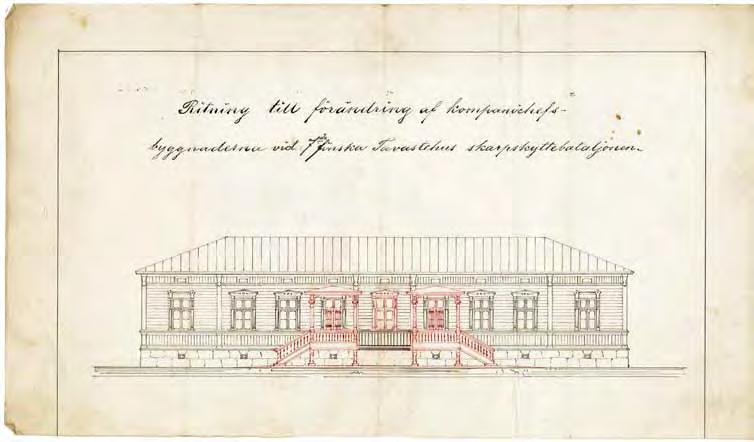 Ritning till förändring af kompanichefs-
byggnaderna vid 7 Finska Tavastehus skarpskyttebataljonen.